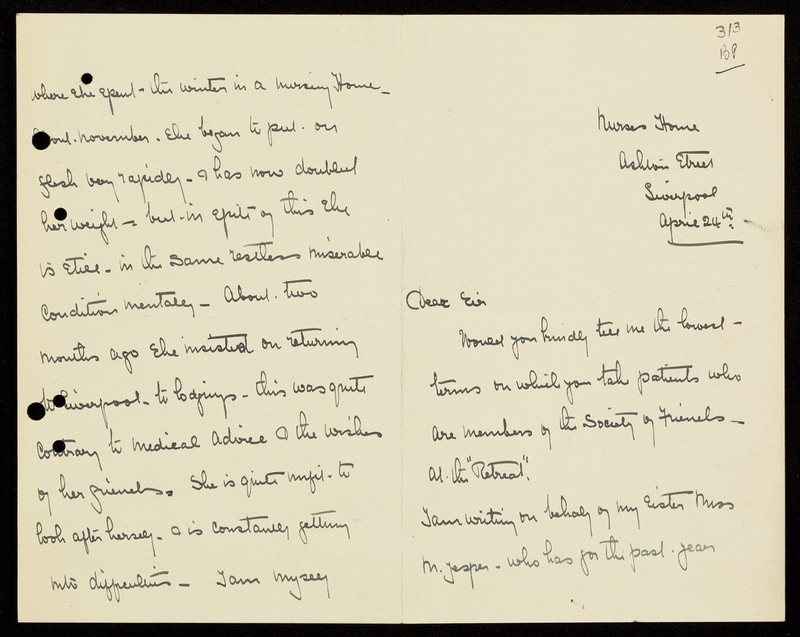 313
BP
Nurses Home
Ashton Street
Liverpool
April 24th.
Dear Sir
Would you kindly tell me the lowest
terms on which you take patients who
are members of the Society of Friends -
at the "Retreat".
I am writing on behalf of my sister Miss
M. Jesper - who has for the past year
where she spent the winter in a nursing Home -
about November. She began to put on
flesh very rapidly - & has now doubled
her weight - but in spite of this she
is still in the same restless miserable
condition mentally - About two
months ago she insisted on returning
to Liverpool - to lodgings - this was quite
contrary to medical advice & the wishes
of her friends. She is quite unfit to
look after herself - & is constantly getting
into difficulties - I am myself